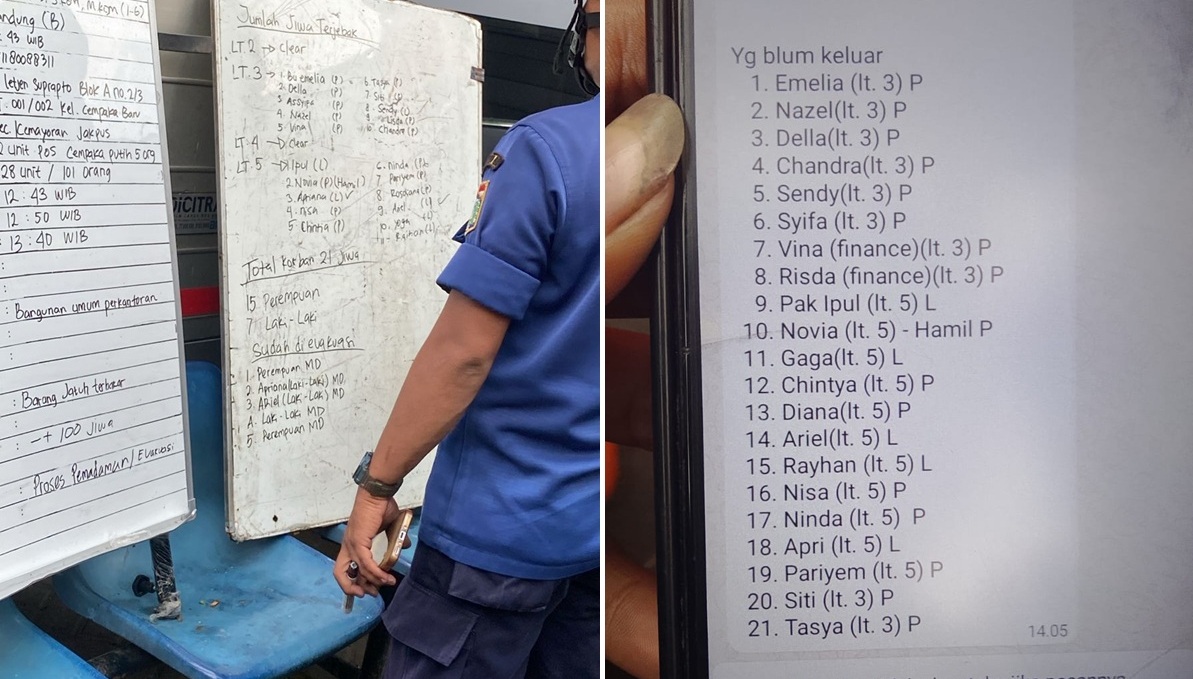 Kom, M.Kom (1-6)
andung (B)
: 43 WIB
1180088311
Letjen Suprapto Blok A no. 2/3
. 001/002 Kel. Cempaka Baru
ec Kemayoran Jakpus
2 unit Pos Cempaka putih 5 org
28 unit / 101 orang
12 : 43 WIB
12 : 50 WIB
13 : 40 WIB
:
:
: Bangunan umum perkantoran
:
:
: Barang Jatuh terbakar
: -+ 100 Jiwa
: Proses Pemadaman / Evakuasi
Jumlah Jiwa Terjebak
LT. 2 → Clear
LT. 3 → 1. Bu emelia (P)
2. Della (P)
3. Assyifa (P)
4. Nazel (P)
5. Vina (P)
6. Tasya (P)
7. Siti (P)
8. Sendy
9. Risda (P)
10. Chandra (P)
LT. 4 → Clear
LT. 5 → 1. Ipul (L)
2. Novia (P) (Hamil)
3. Apriana (L) ✓
4. nisa (P)
5. Chintia (P)
6. ninda (P)
7. Pariyem (P)
8. Rosdiana (P)
9. Ariel (L) ✓
10.
11. Raihan (L)
Total Korban 21 Jiwa
15 Perempuan
7 Laki-Laki
Sudah di evakuasi
1. Perempuan MD
2. Apriana (Laki-Laki) MD
3. Ariel (Laki-Laki) MD
4. Laki-Laki MD
5. Perempuan MD
DICITRA
Yg blum keluar
1. Emelia (lt. 3) P
2. Nazel(lt. 3) P
3. Della(lt. 3) P
4. Chandra(lt. 3) P
5. Sendy(lt. 3) P
6. Syifa (lt. 3) P
7. Vina (finance)(lt. 3) P
8. Risda (finance)(lt. 3) P
9. Pak Ipul (lt. 5) L
10. Novia (lt. 5) - Hamil P
11. Gaga(lt. 5) L
12. Chintya (lt. 5) P
13. Diana(lt. 5) P
14. Ariel(lt. 5) L
15. Rayhan (lt. 5) L
16. Nisa (lt. 5) P
17. Ninda (lt. 5) P
18. Apri (lt. 5) L
19. Pariyem (lt. 5) P
20. Siti (lt. 3) P
21. Tasya (lt. 3) P
14.05